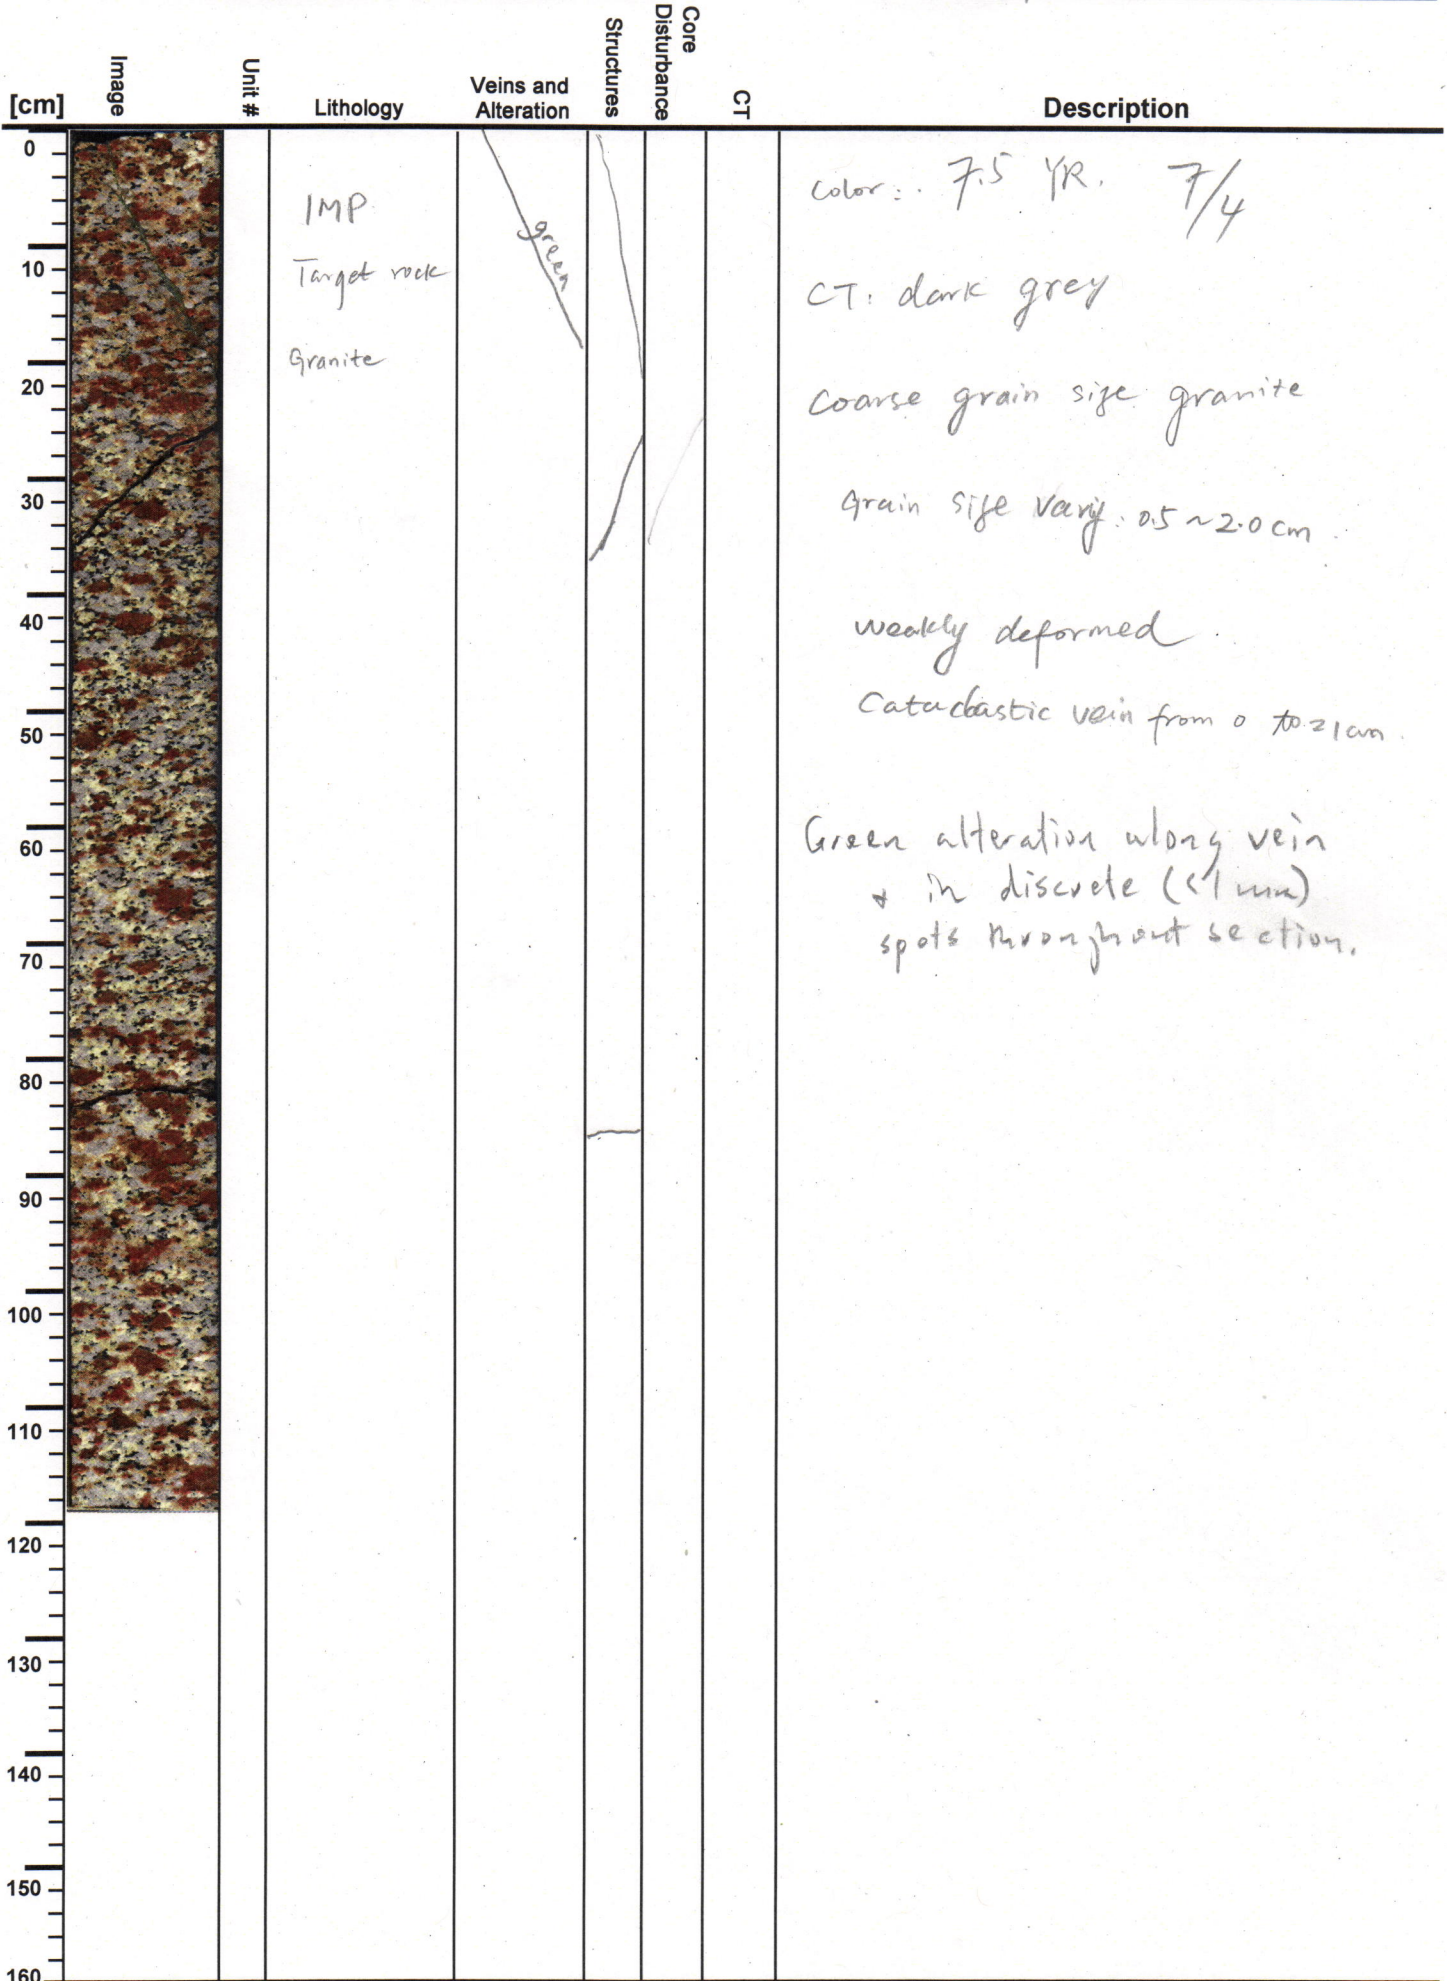 [cm]
Image
Unit #
Lithology
Veins and
Alteration
Structures
Core
Disturbance
CT
Description
0
10
20
30
40
50
60
70
80
90
100
110
120
130
140
150
160
IMP
Target rock
Granite
green
Color: 7.5 YR. 7/4
CT: dark grey
Coarse grain size granite
Grain size vary: 0.5 ~ 2.0 cm
weakly deformed
Cataclastic vein from 0 to 21 cm.
Green alteration along vein
+ in discrete (<1 mm)
spots throughout section.